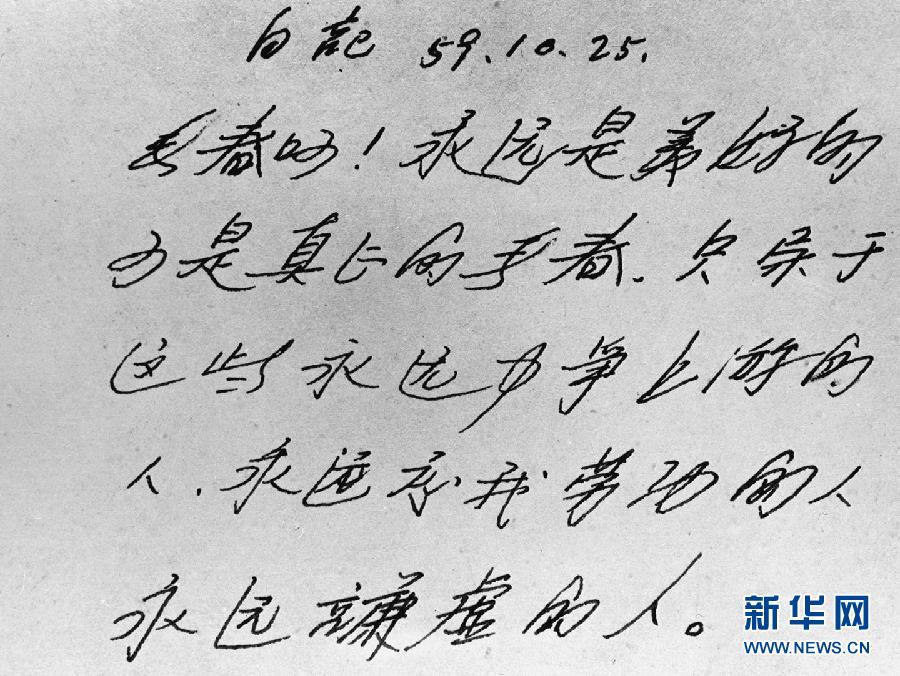 日記 59.10.25.
青春！永远是美好的
可是真正的青春.只属于
这些永远力争上游的
人.永远忘我劳动的人
永远謙虚的人。
新华网
WWW.NEWS.CN